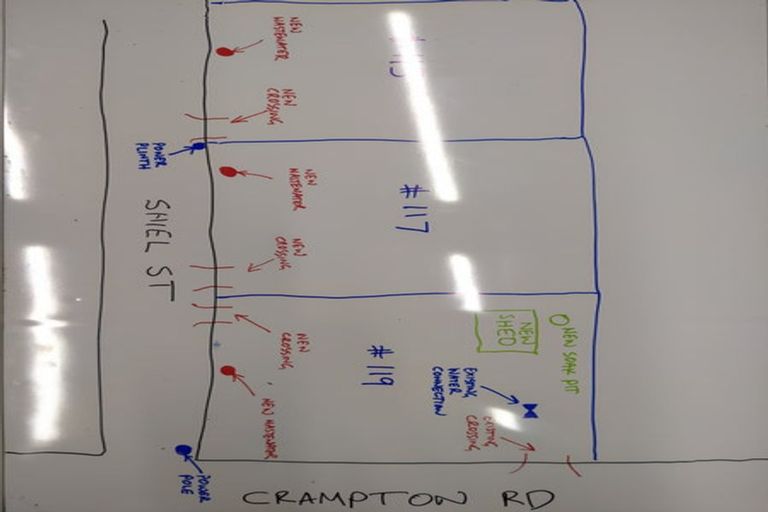 NEW
WASTEWATER
NEW
CROSSING
POWER
PLINTH
NEW
WASTEWATER
#117
SHIEL ST
NEW
CROSSING
NEW
CROSSING
NEW
SHED
NEW SOAK PIT
#119
EXISTING
WATER
CONNECTION
NEW WASTEWATER
EXISTING
CROSSING
POWER
POLE
CRAMPTON RD